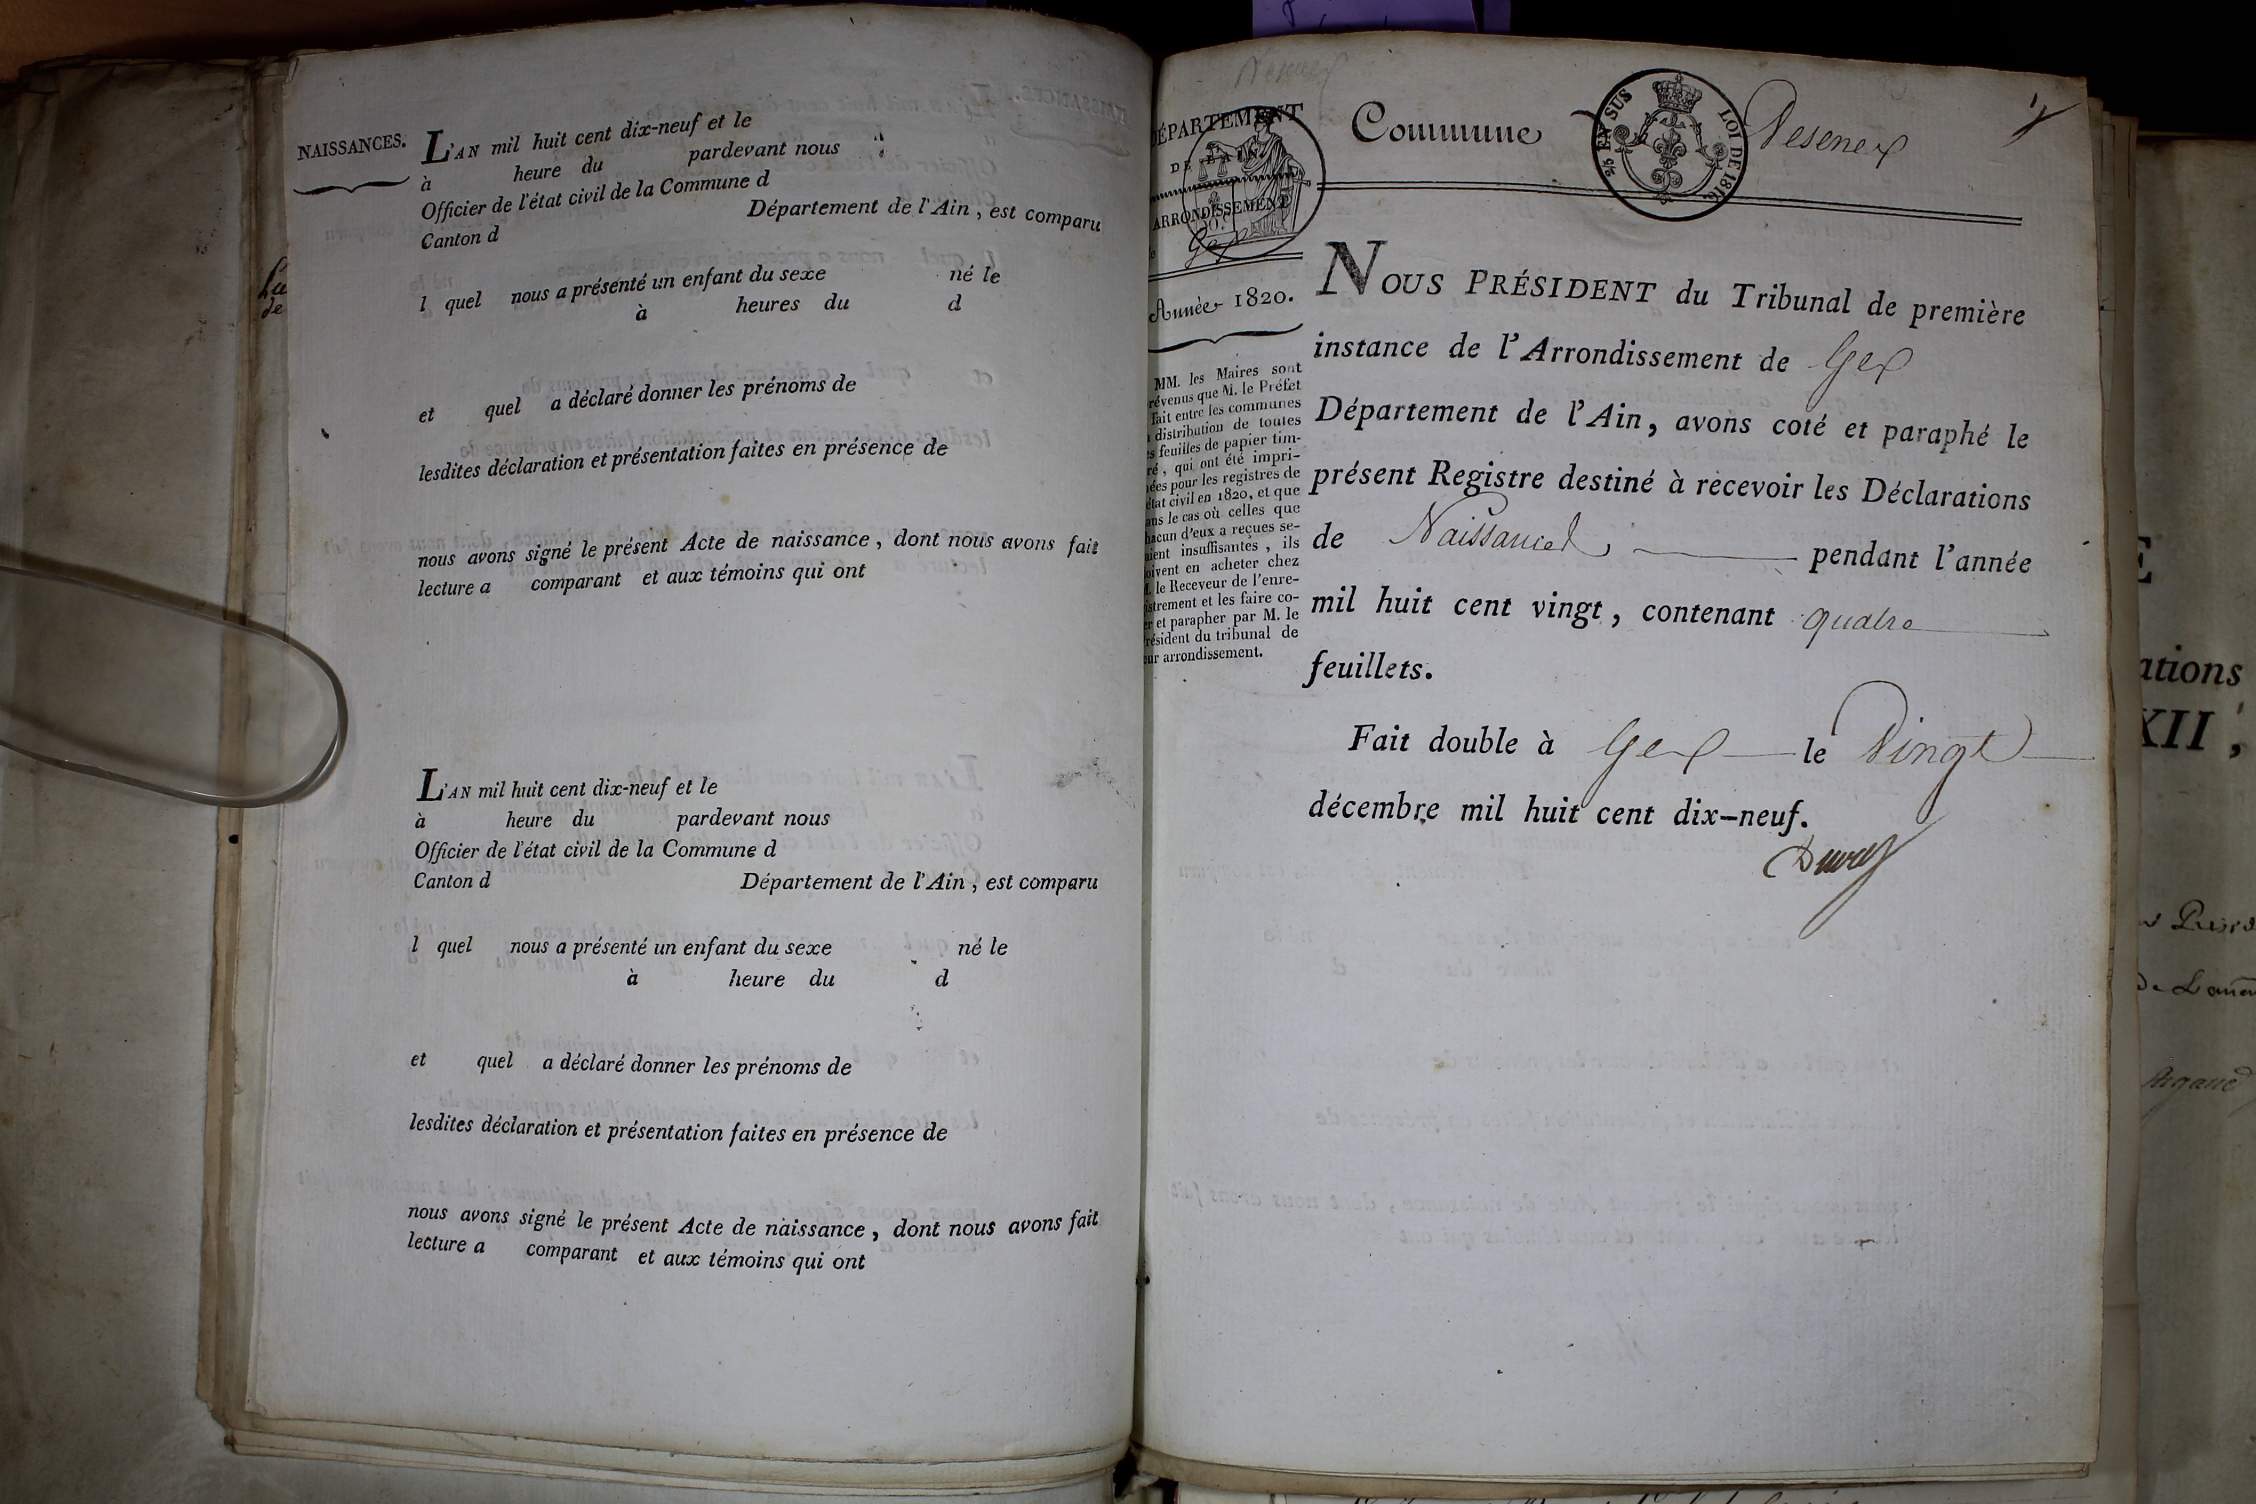 NAISSANCES.
L'AN mil huit cent dix-neuf et le
à heure du pardevant nous
Officier de l'état civil de la Commune d
Canton d Département de l'Ain, est comparu
l quel nous a présenté un enfant du sexe né le
à heures du d
et quel a déclaré donner les prénoms de
lesdites déclaration et présentation faites en présence de
nous avons signé le présent Acte de naissance, dont nous avons fait
lecture a comparant et aux témoins qui ont
L'AN mil huit cent dix-neuf et le
à heure du pardevant nous
Officier de l'état civil de la Commune d
Canton d Département de l'Ain, est comparu
l quel nous a présenté un enfant du sexe né le
à heure du d
et quel a déclaré donner les prénoms de
lesdites déclaration et présentation faites en présence de
nous avons signé le présent Acte de naissance, dont nous avons fait
lecture a comparant et aux témoins qui ont
DÉPARTEMENT
DE L'AIN.
ARRONDISSEMENT
Gex
Année 1820.
MM. les Maires sont
révenus que M. le Préfet
fait entre les communes
distribution de toutes
s feuilles de papier tim-
ré, qui ont été impri-
ées pour les registres de
état civil en 1820, et que
ans le cas où celles que
hacun d'eux a reçues se-
aient insuffisantes, ils
oivent en acheter chez
. le Receveur de l'enre-
istrement et les faire co-
er et parapher par M. le
résident du tribunal de
eur arrondissement.
Commune Vesenex
EN SUS LOI DE 1816
NOUS PRÉSIDENT du Tribunal de première
instance de l'Arrondissement de Gex
Département de l'Ain, avons coté et paraphé le
présent Registre destiné à recevoir les Déclarations
de Naissances pendant l'année
mil huit cent vingt, contenant quatre
feuillets.
Fait double à Gex le Vingt
décembre mil huit cent dix-neuf.
ations
XII,